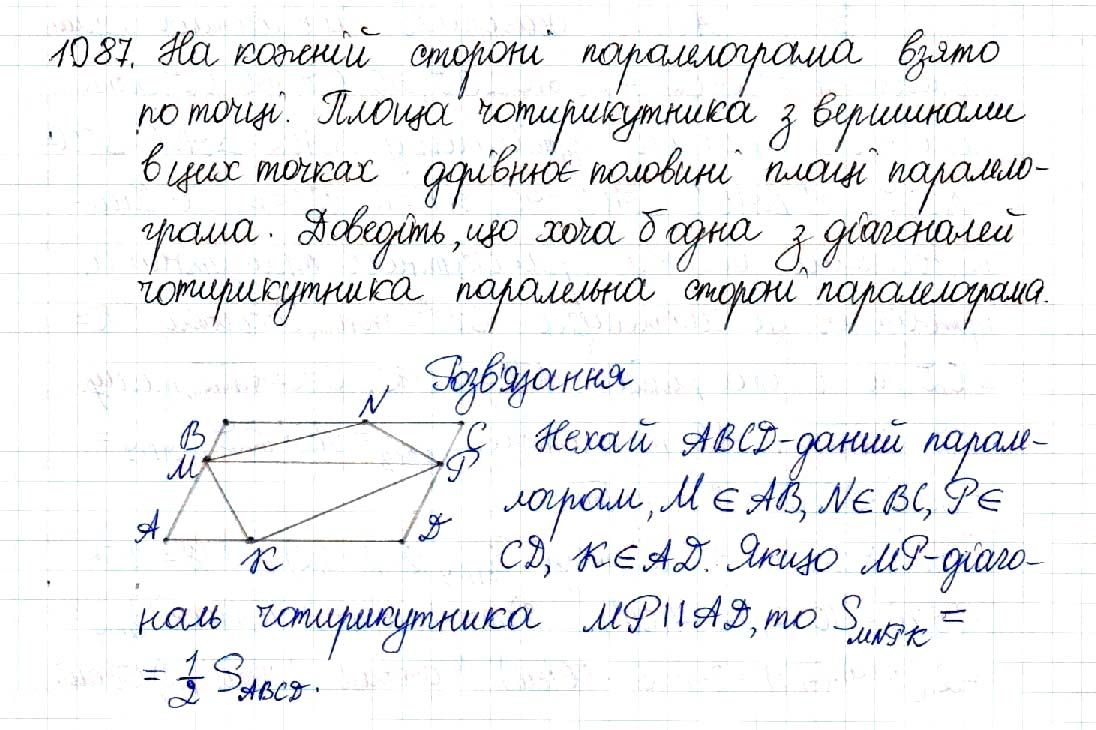 1087. На кожній стороні паралелограма взято
по точці. Площа чотирикутника з вершинами
в цих точках дорівнює половині площі паралело-
грама. Доведіть, що хоча б одна з діагоналей
чотирикутника паралельна стороні паралелограма.
Розв'язання
B N C
M P
A K D
Нехай ABCD - даний парале-
лограм, M ∈ AB, N ∈ BC, P ∈
CD, K ∈ AD. Якщо MP - діаго-
наль чотирикутника MP || AD, то S_MNPK =
= 1/2 S_ABCD.